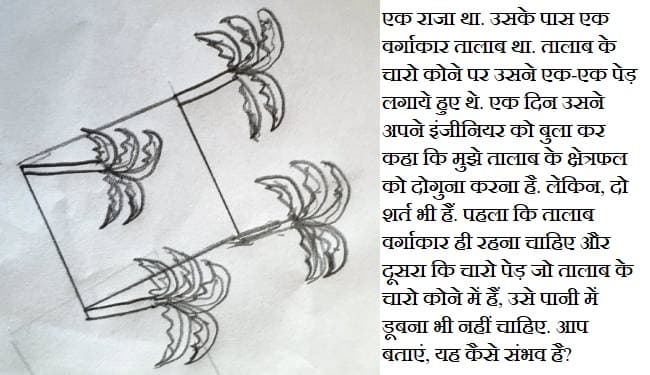 एक राजा था. उसके पास एक
वर्गाकार तालाब था. तालाब के
चारो कोने पर उसने एक-एक पेड़
लगाये हुए थे. एक दिन उसने
अपने इंजीनियर को बुला कर
कहा कि मुझे तालाब के क्षेत्रफल
को दोगुना करना है. लेकिन, दो
शर्त भी हैं. पहला कि तालाब
वर्गाकार ही रहना चाहिए और
दूसरा कि चारो पेड़ जो तालाब के
चारो कोने में हैं, उसे पानी में
डूबना भी नहीं चाहिए. आप
बताएं, यह कैसे संभव है?